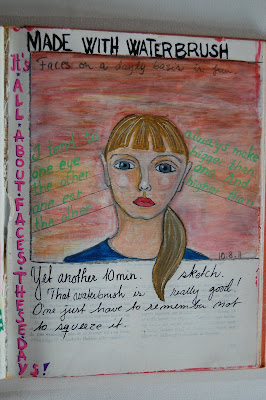 MADE WITH WATERBRUSH
Faces on a dayly basis is fun
It's ALL ABOUT FACES THESE DAYS!
I tend to
one eye
the other
one ear
the other
always make
bigger then
and
higher than
10.8.11
Yet another 10 min. sketch.
That waterbrush is really good!
One just have to remember not
to squeeze it.